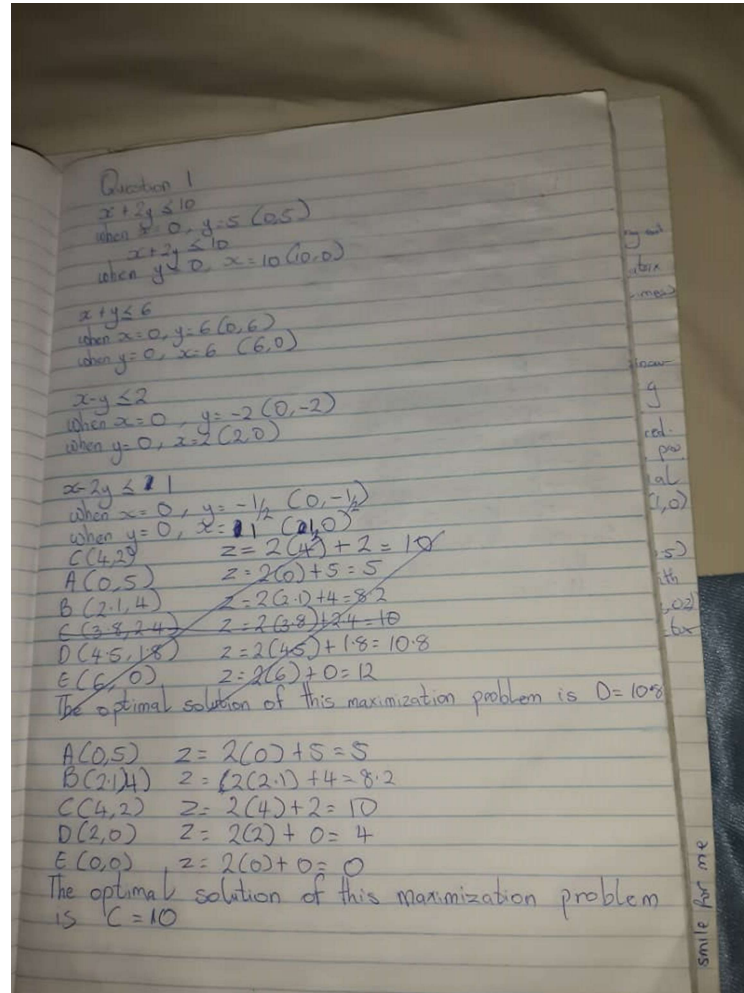 Question 1
x + 2y ≤ 10
when x = 0, y = 5 (0,5)
x + 2y ≤ 10
when y = 0, x = 10 (10,0)
x + y ≤ 6
when x = 0, y = 6 (0,6)
when y = 0, x = 6 (6,0)
x - y ≤ 2
when x = 0, y = -2 (0,-2)
when y = 0, x = 2 (2,0)
x - 2y ≤ 1
when x = 0, y = -1/2 (0,-1/2)
when y = 0, x = 1 (1,0)
C (4,2) z = 2(4) + 2 = 10
A (0,5) z = 2(0) + 5 = 5
B (2.1, 4) z = 2(2.1) + 4 = 8.2
C (3.8, 2.4) z = 2(3.8) + 2.4 = 10
D (4.5, 1.8) z = 2(4.5) + 1.8 = 10.8
E (6, 0) z = 2(6) + 0 = 12
The optimal solution of this maximization problem is D = 10.8
A (0,5) z = 2(0) + 5 = 5
B (2.1,4) z = 2(2.1) + 4 = 8.2
C (4,2) z = 2(4) + 2 = 10
D (2,0) z = 2(2) + 0 = 4
E (0,0) z = 2(0) + 0 = 0
The optimal solution of this maximization problem
is C = 10
smile for me